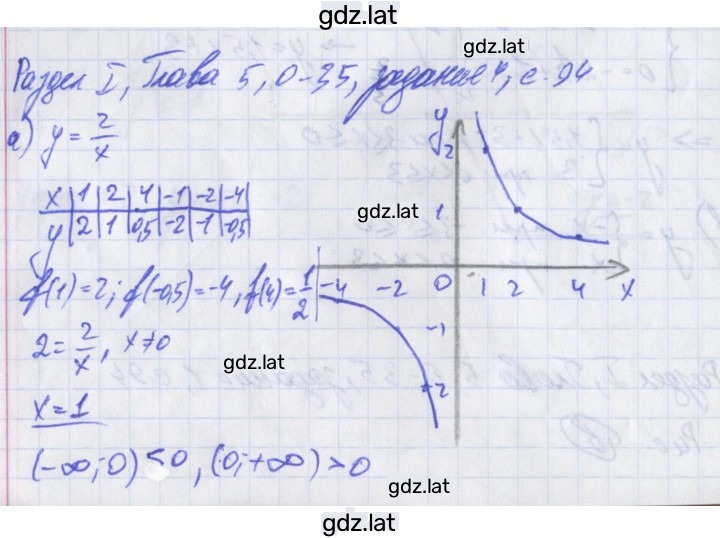 gdz.lat
gdz.lat
Раздел I, Глава 5, 0-35, задание 4, с. 94
а) y = 2/x
x | 1 | 2 | 4 | -1 | -2 | -4
y | 2 | 1 | 0,5 | -2 | -1 | -0,5
gdz.lat
f(1)=2; f(-0,5)=-4, f(4)=1/2
2 = 2/x, x≠0
gdz.lat
x=1
(-∞;0) <0, (0;+∞) >0
y
2
1
-4 -2 0 1 2 4 x
-1
-2
gdz.lat
gdz.lat